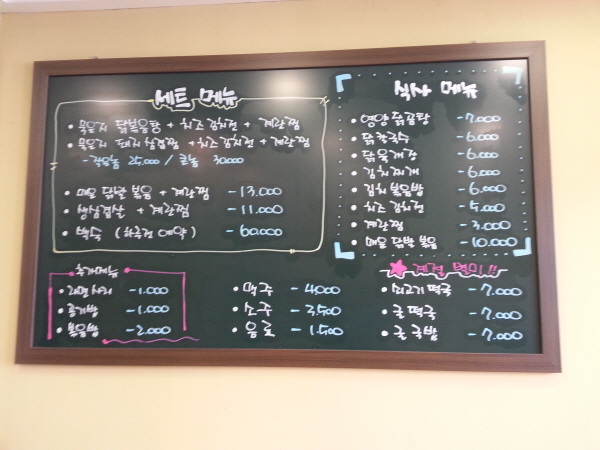 세트 메뉴
• 묵은지 닭볶음탕 + 치즈 김치전 + 계란찜
• 묵은지 돼지 참갈찜 + 치즈김치전 + 계란찜
- 작은놈 25,000 / 큰놈 30,000
• 매운 닭발 볶음 + 계란찜 - 13.000
• 생삼겹살 + 계란찜 - 11.000
• 백숙 (하루전 예약) - 60.000
식사 메뉴
• 영양 닭곰탕 - 7.000
• 닭칼국수 - 6.000
• 닭육개장 - 6.000
• 김치찌개 - 6.000
• 김치볶음밥 - 6.000
• 치즈 김치전 - 5.000
• 계란찜 - 3.000
• 매운 닭발 볶음 - 10.000
추가메뉴
• 라면 사리 - 1.000
• 공기밥 - 1.000
• 볶음밥 - 2.000
• 맥주 - 4000
• 소주 - 3,500
• 음료 - 1.500
계절 별미!!
• 쇠고기 떡국 - 7.000
• 굴 떡국 - 7.000
• 굴 국밥 - 7.000